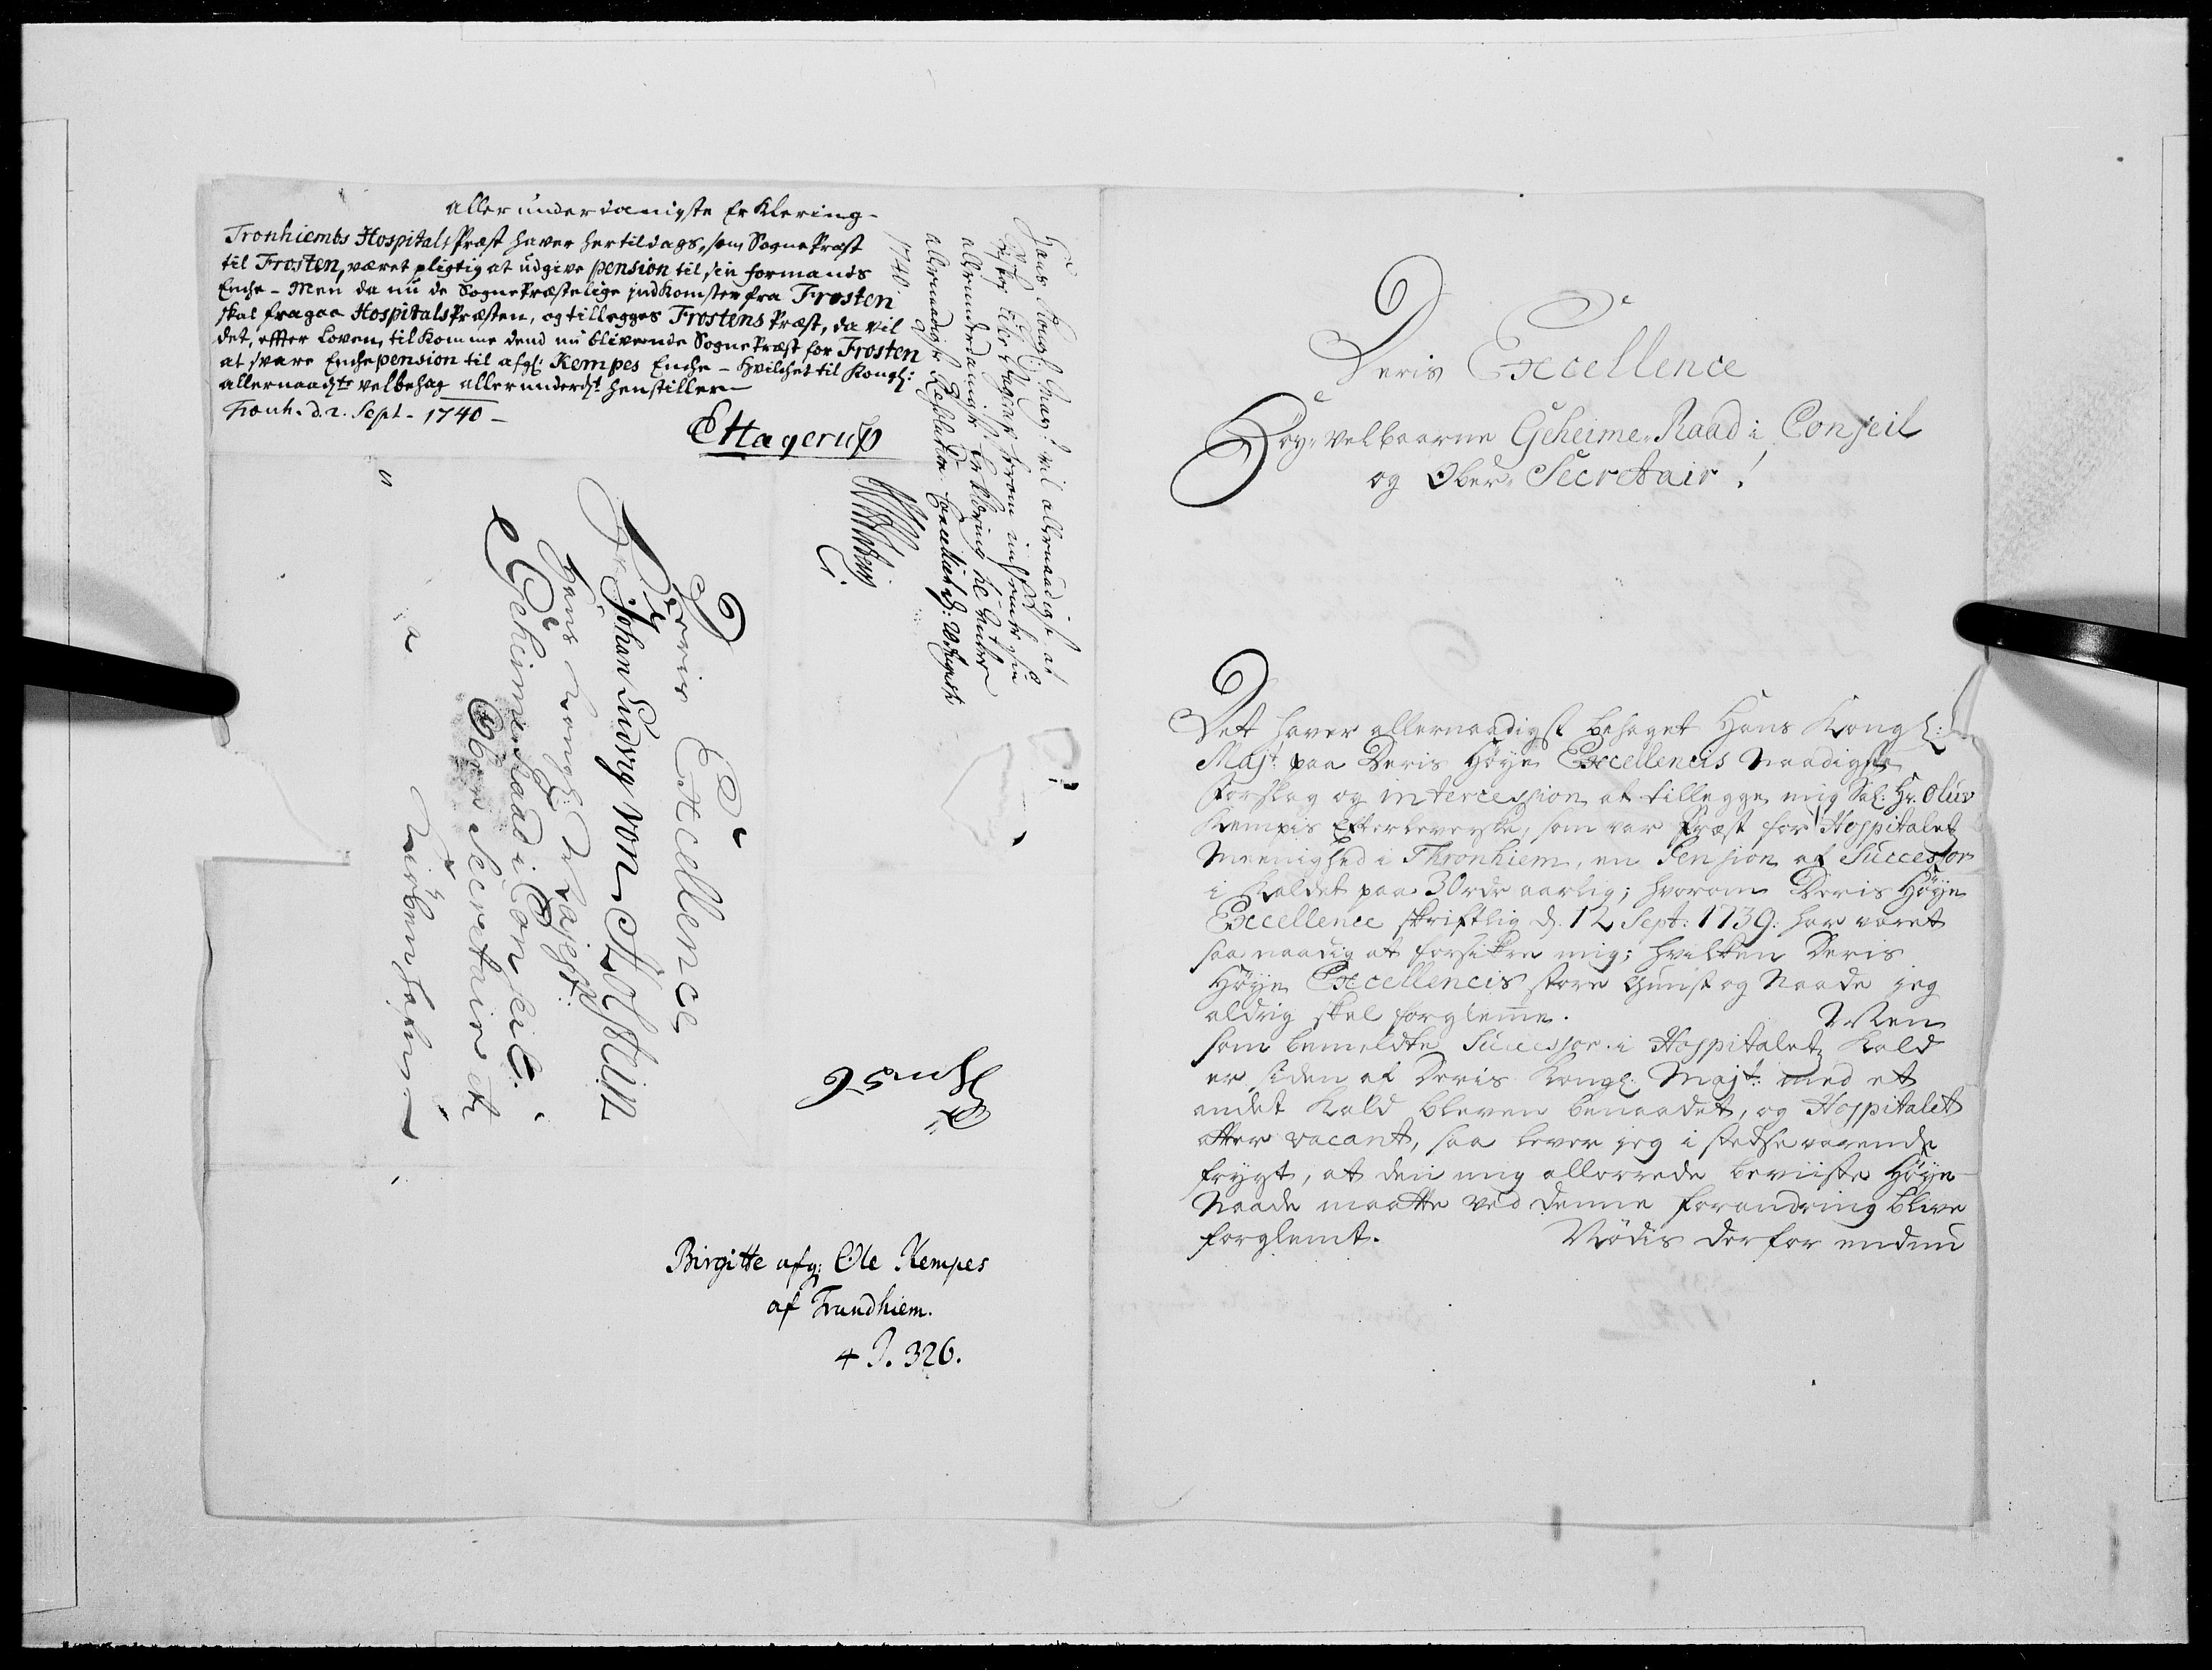 allerunderdanigste Erklering-
Tronhiembs Hospitals Præst haver hertildags, som Sogne Præst
til Frosten, været pligtig at udgive pension til sin formands
Enche - Men da nu de Sogne Præstelige indkomster fra Frosten
skal fragaa Hospitals Præsten, og tillegges Frostens Præst, da vil
det, effter Loven, tilkomme dend nu blivende Sogne Præst for Frosten
at svare Enchepension til afgl: Kempes Enche - hvilchet til Kongl:
allernaadgte velbehag allerunderdt henstilles
Tronh. d. 2. Sept - 1740 -
EHagerup
Hans Kongl: May: vil allernaadigst at
Bisp Eiler Hagerup herom indsender sin
allerunderdanigste Erklering til videre
allernaadigste Resolution. Cancelliet d: August
1740
Deris Excellence
Hr: Johan Ludvig von Holstein
Hans Kongl: Majest:
Geheime Raad i Conseil.
Ober Secretaire etc
Kiøbenhafn
No 56
Birgitte afg: Ole Kempes
af Trundhiem.
4 J. 326.
Deris Excellence
Høy-velbaarne Geheime-Raad i Conseil
og Ober-Secretair!
Det haver allernaadigst behaget Hans Kongl:
Majt: paa Deris Høye Excellencis Naadigste
Forslag og intercession at tillegge mig Sal: Hr. Oluv
Kempis Efterleverske, som var Præst for Hospitalets
Meenighed i Thronhiem, en Pension af Successor
i Kaldet paa 30 rdr aarlig; hvorom Deris Høye
Excellence skriftlig d. 12 Sept: 1739. har været
saa naadig at forsikre mig; hvilken Deris
Høye Excellencis store Gunst og Naade jeg
aldrig skal forglemme. Men
som bemeldte Successor i Hospitalets Kald
er siden af Deris Kongl. Majt: med et
andet Kald bleven benaadet, og Hospitalet
atter vacant, saa lever jeg i stedsevarende
frygt, at den mig allerrede beviiste Høye
Naade maatte ved denne forandring blive
forglemt. Nødis derfor endnu